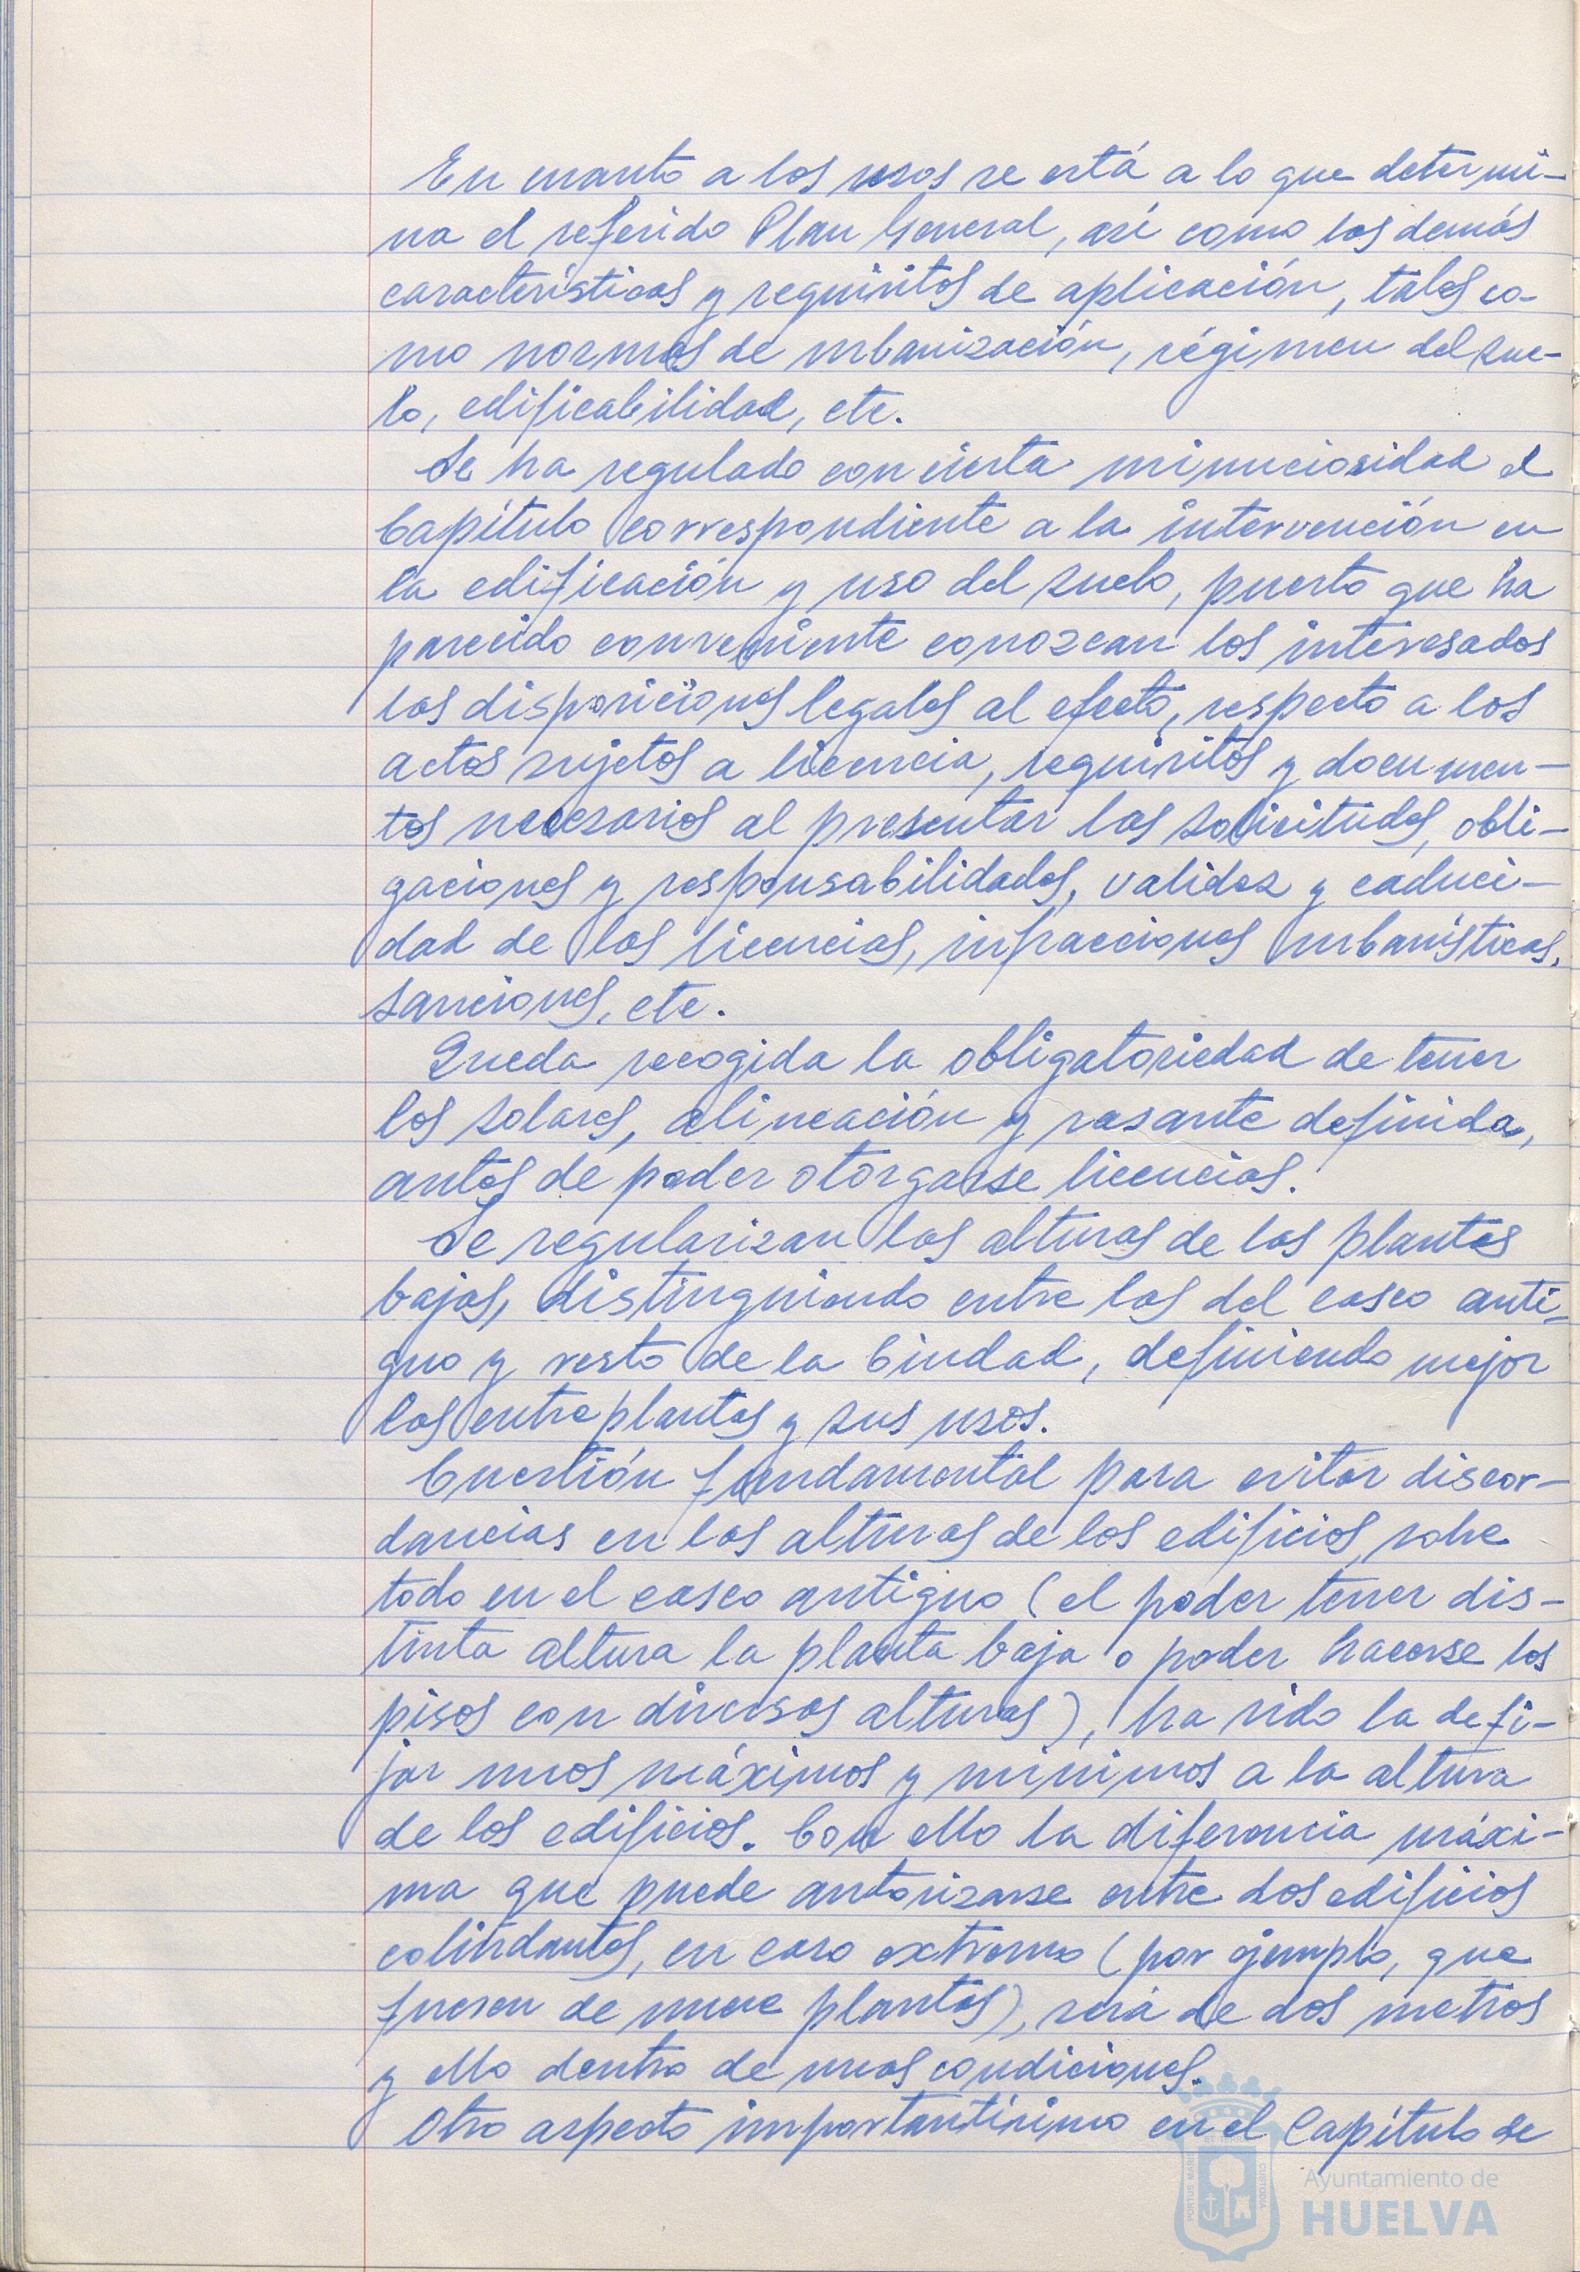 En cuanto a los usos se está a lo que determi-
na el referido Plan General, así como las demás
características y requisitos de aplicación, tales co-
mo normas de urbanización, régimen del sue-
lo, edificabilidad, etc.
Se ha regulado con cierta minuciosidad el
Capítulo correspondiente a la intervención en
la edificación y uso del suelo, puesto que ha
parecido conveniente conozcan los interesados
las disposiciones legales al efecto, respecto a los
actos sujetos a licencia, requisitos y documen-
tos necesarios al presentar las solicitudes, obli-
gaciones y responsabilidades, validez y caduci-
dad de las licencias, infracciones urbanísticas,
sanciones, etc.
Queda recogida la obligatoriedad de tener
los solares, alineación y rasante definida,
antes de poder otorgarse licencias.
Se regularizan las alturas de las plantas
bajas, distinguiendo entre las del casco anti-
guo y resto de la Ciudad, definiendo mejor
las entreplantas y sus usos.
Cuestión fundamental para evitar discor-
dancias en las alturas de los edificios, sobre
todo en el casco antiguo (el poder tener dis-
tinta altura la planta baja o poder hacerse los
pisos con diversas alturas), ha sido la de fi-
jar unos máximos y mínimos a la altura
de los edificios. Con ello la diferencia máxi-
ma que puede autorizarse entre dos edificios
colindantes, en caso extremo (por ejemplo, que
fuesen de nueve plantas), será de dos metros
y ello dentro de unas condiciones.
Otro aspecto importantísimo en el Capítulo de
Ayuntamiento de
HUELVA